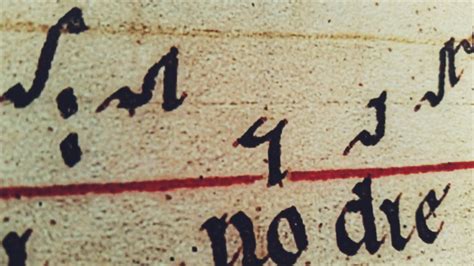 no die